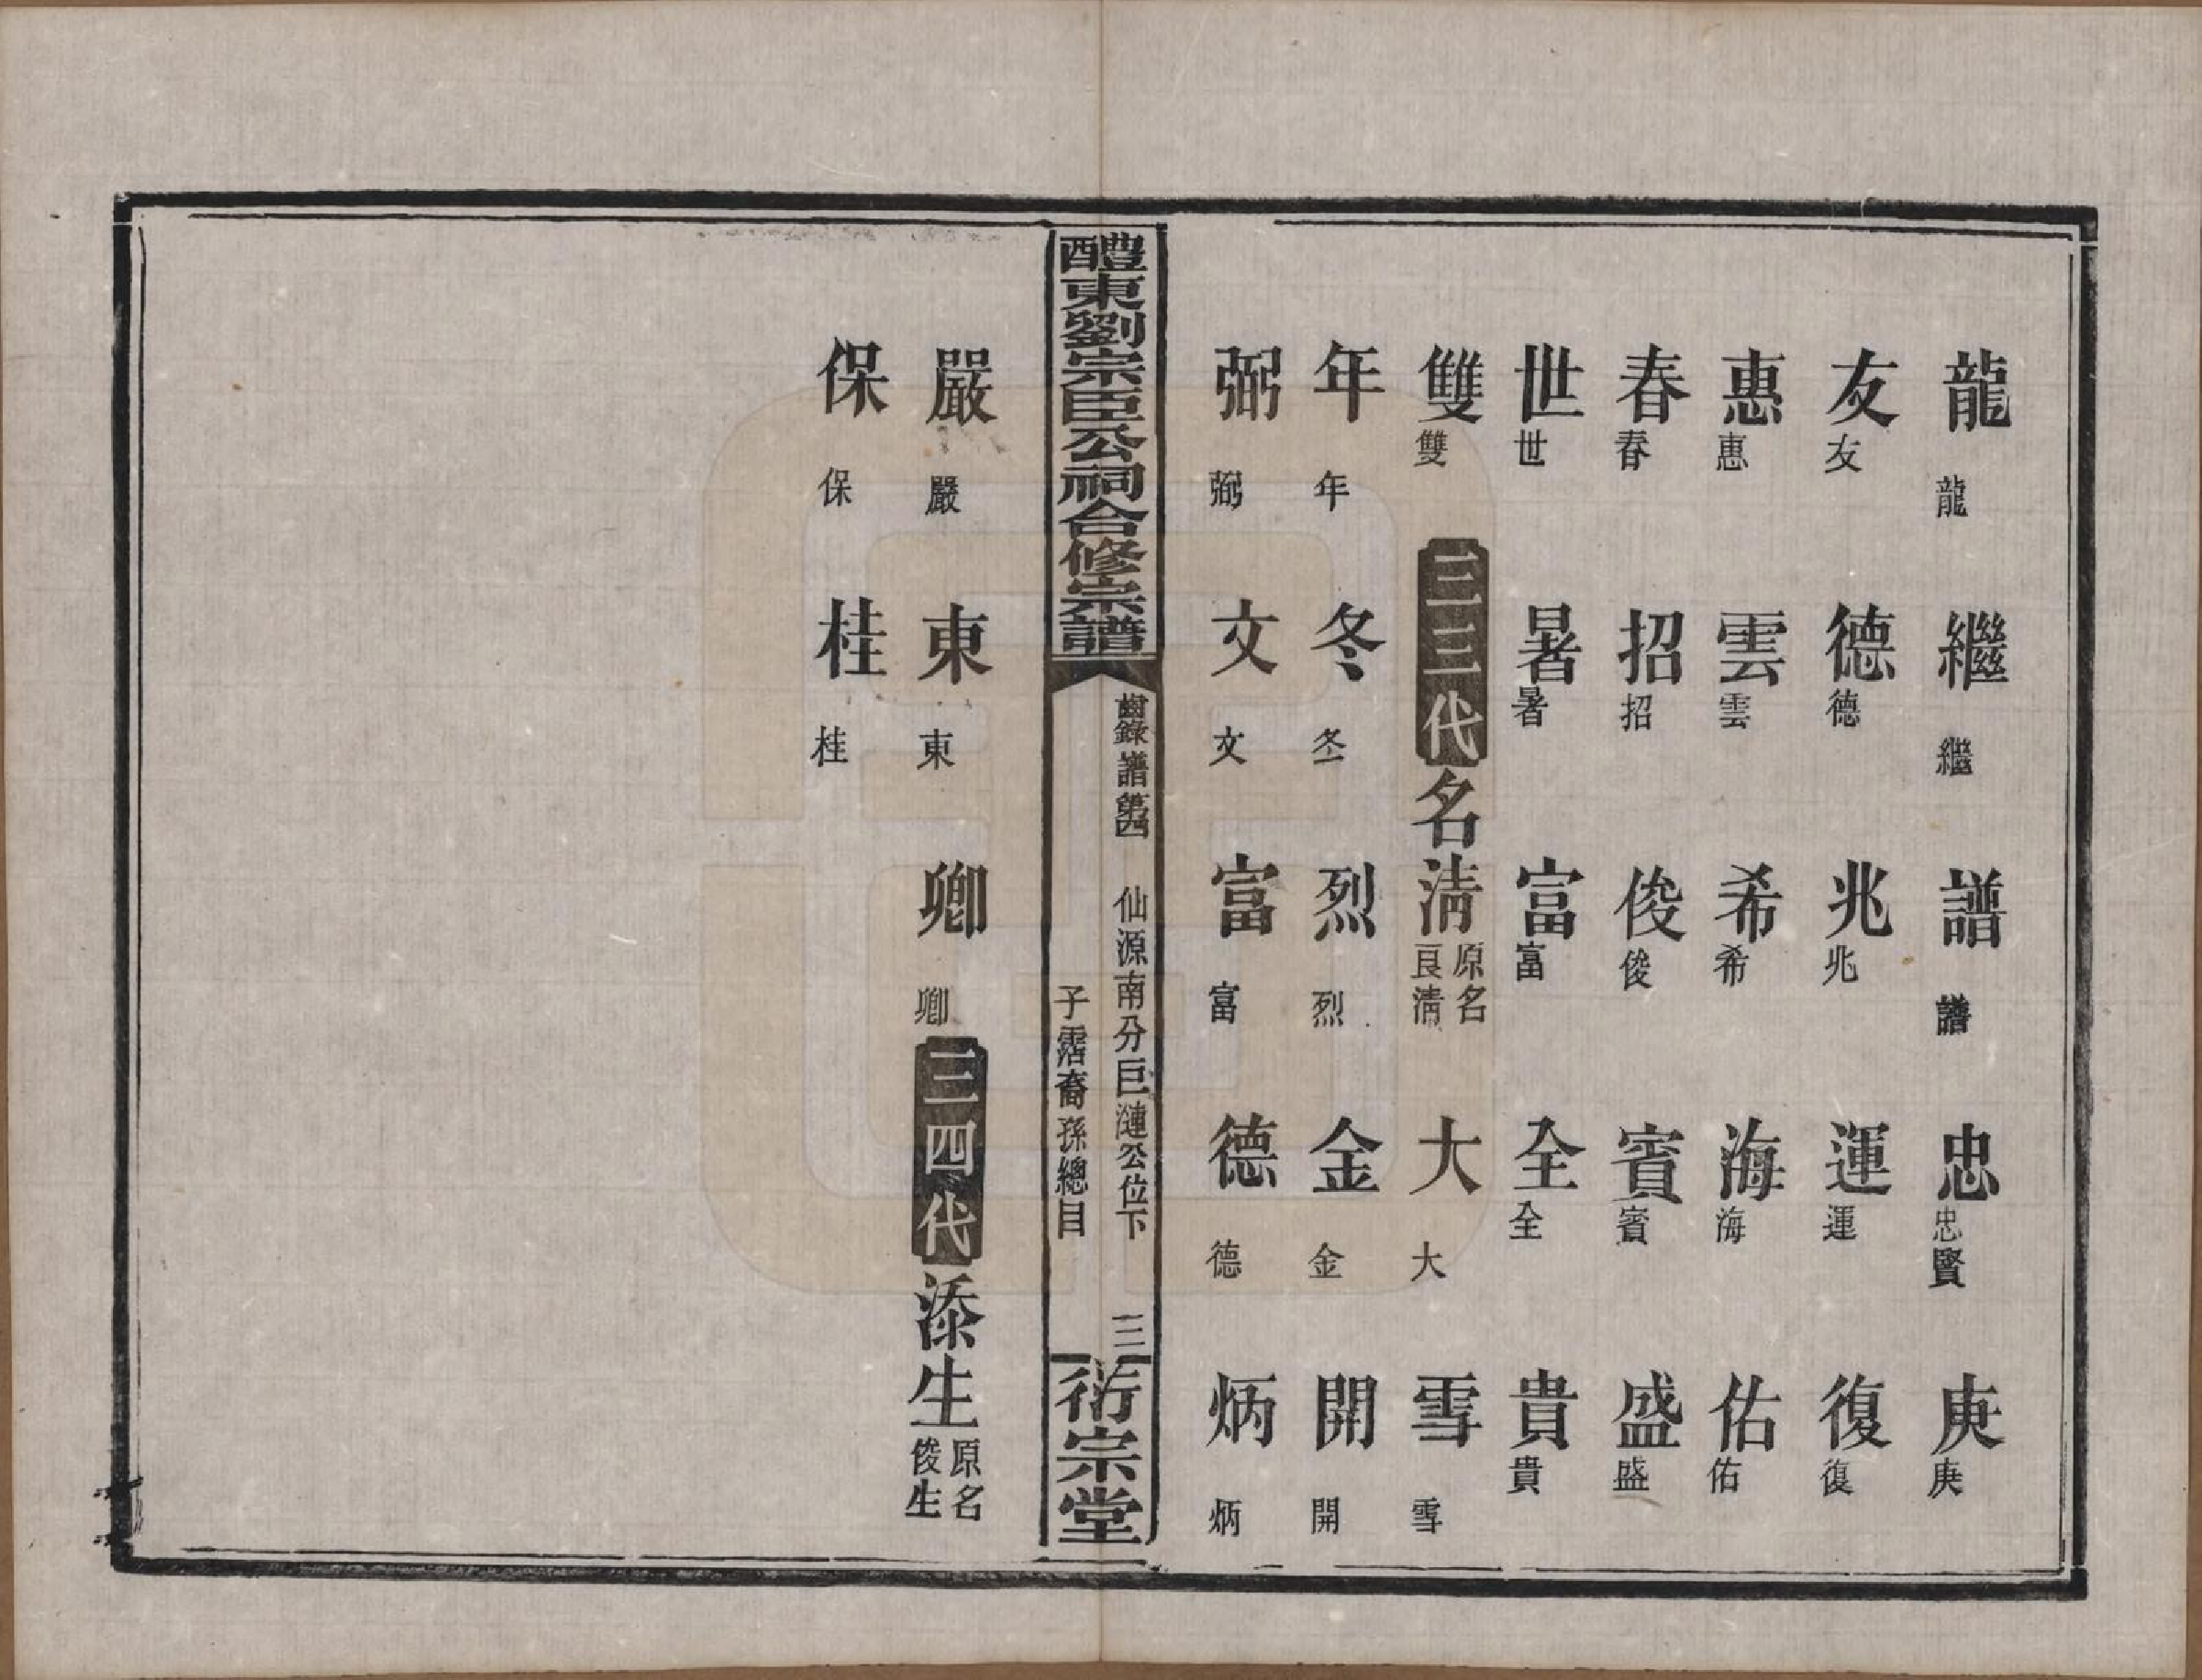 龍龍 繼繼 譜譜 忠忠賢 庚庚
友友 德德 兆兆 運運 復復
惠惠 雲雲 希希 海海 佑佑
春春 招招 俊俊 賓賓 盛盛
世世 暑暑 富富 全全 貴貴
雙雙 三三代 名清原名良清 大大 雪雪
年年 冬冬 烈烈 金金 開開
弼弼 文文 富富 德德 炳炳
醴東劉宗臣公祠合修宗譜
齒錄譜第四 仙源南分巨漣公位下 三
子霑裔孫總目
衍宗堂
嚴嚴 東東 卿卿 三四代 添生原名俊生
保保 桂桂